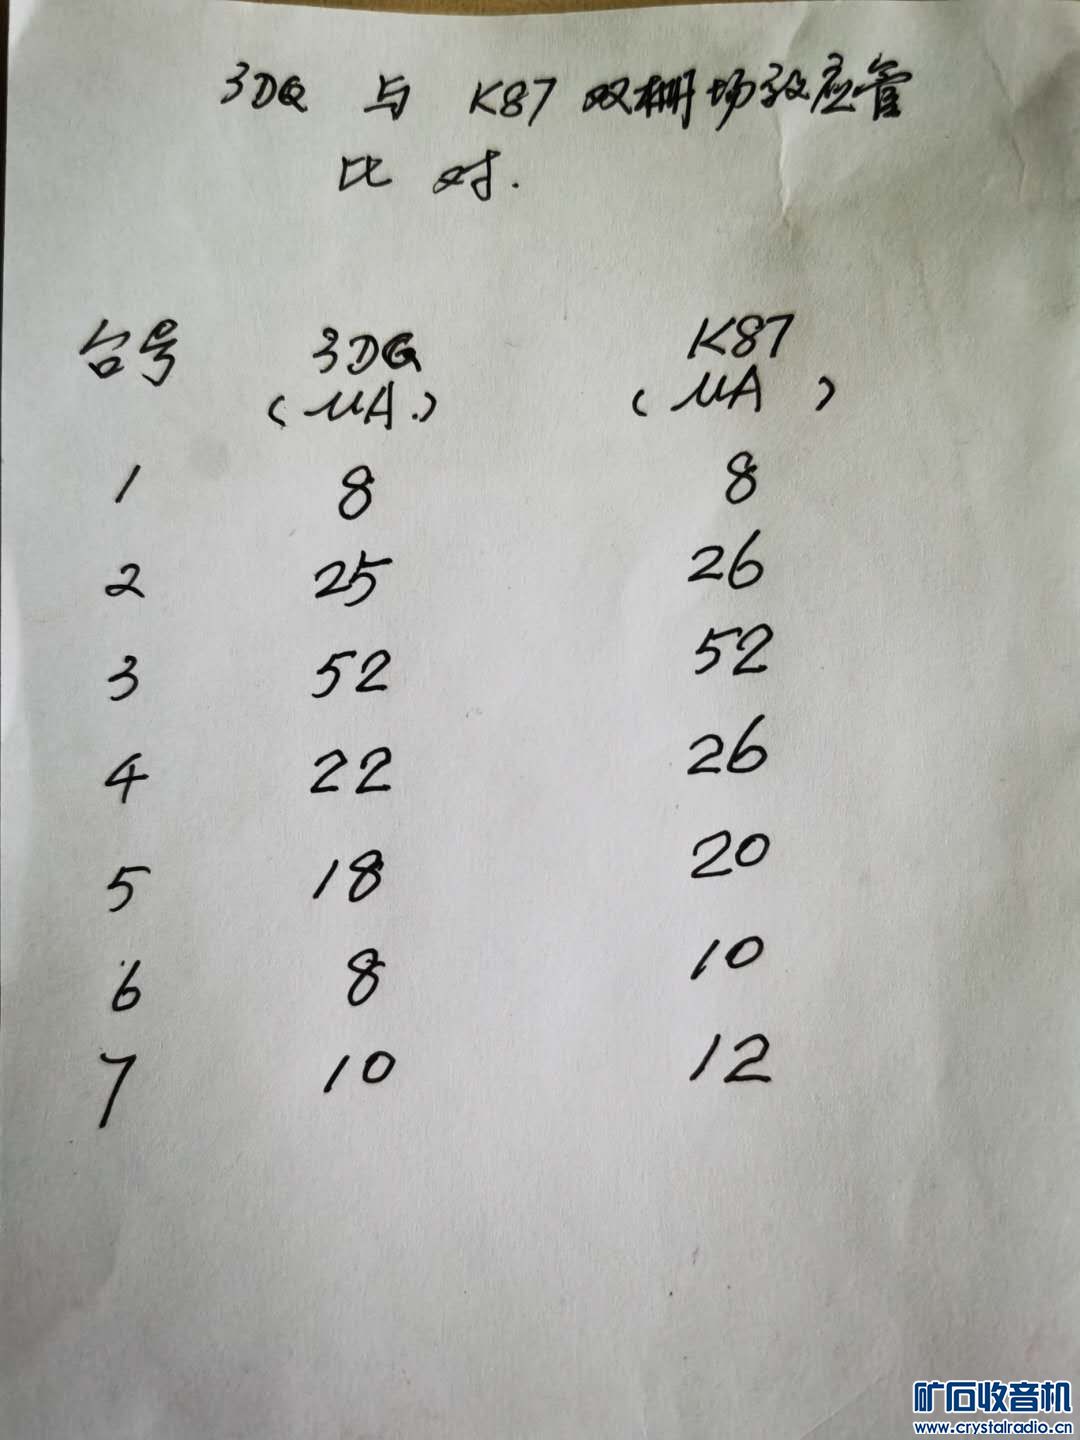 3DG 与 K87 双栅场效应管
比 对.
台号 3DG K87
(μA.) (μA)
1 8 8
2 25 26
3 52 52
4 22 26
5 18 20
6 8 10
7 10 12
矿石收音机
www.crystalradio.cn